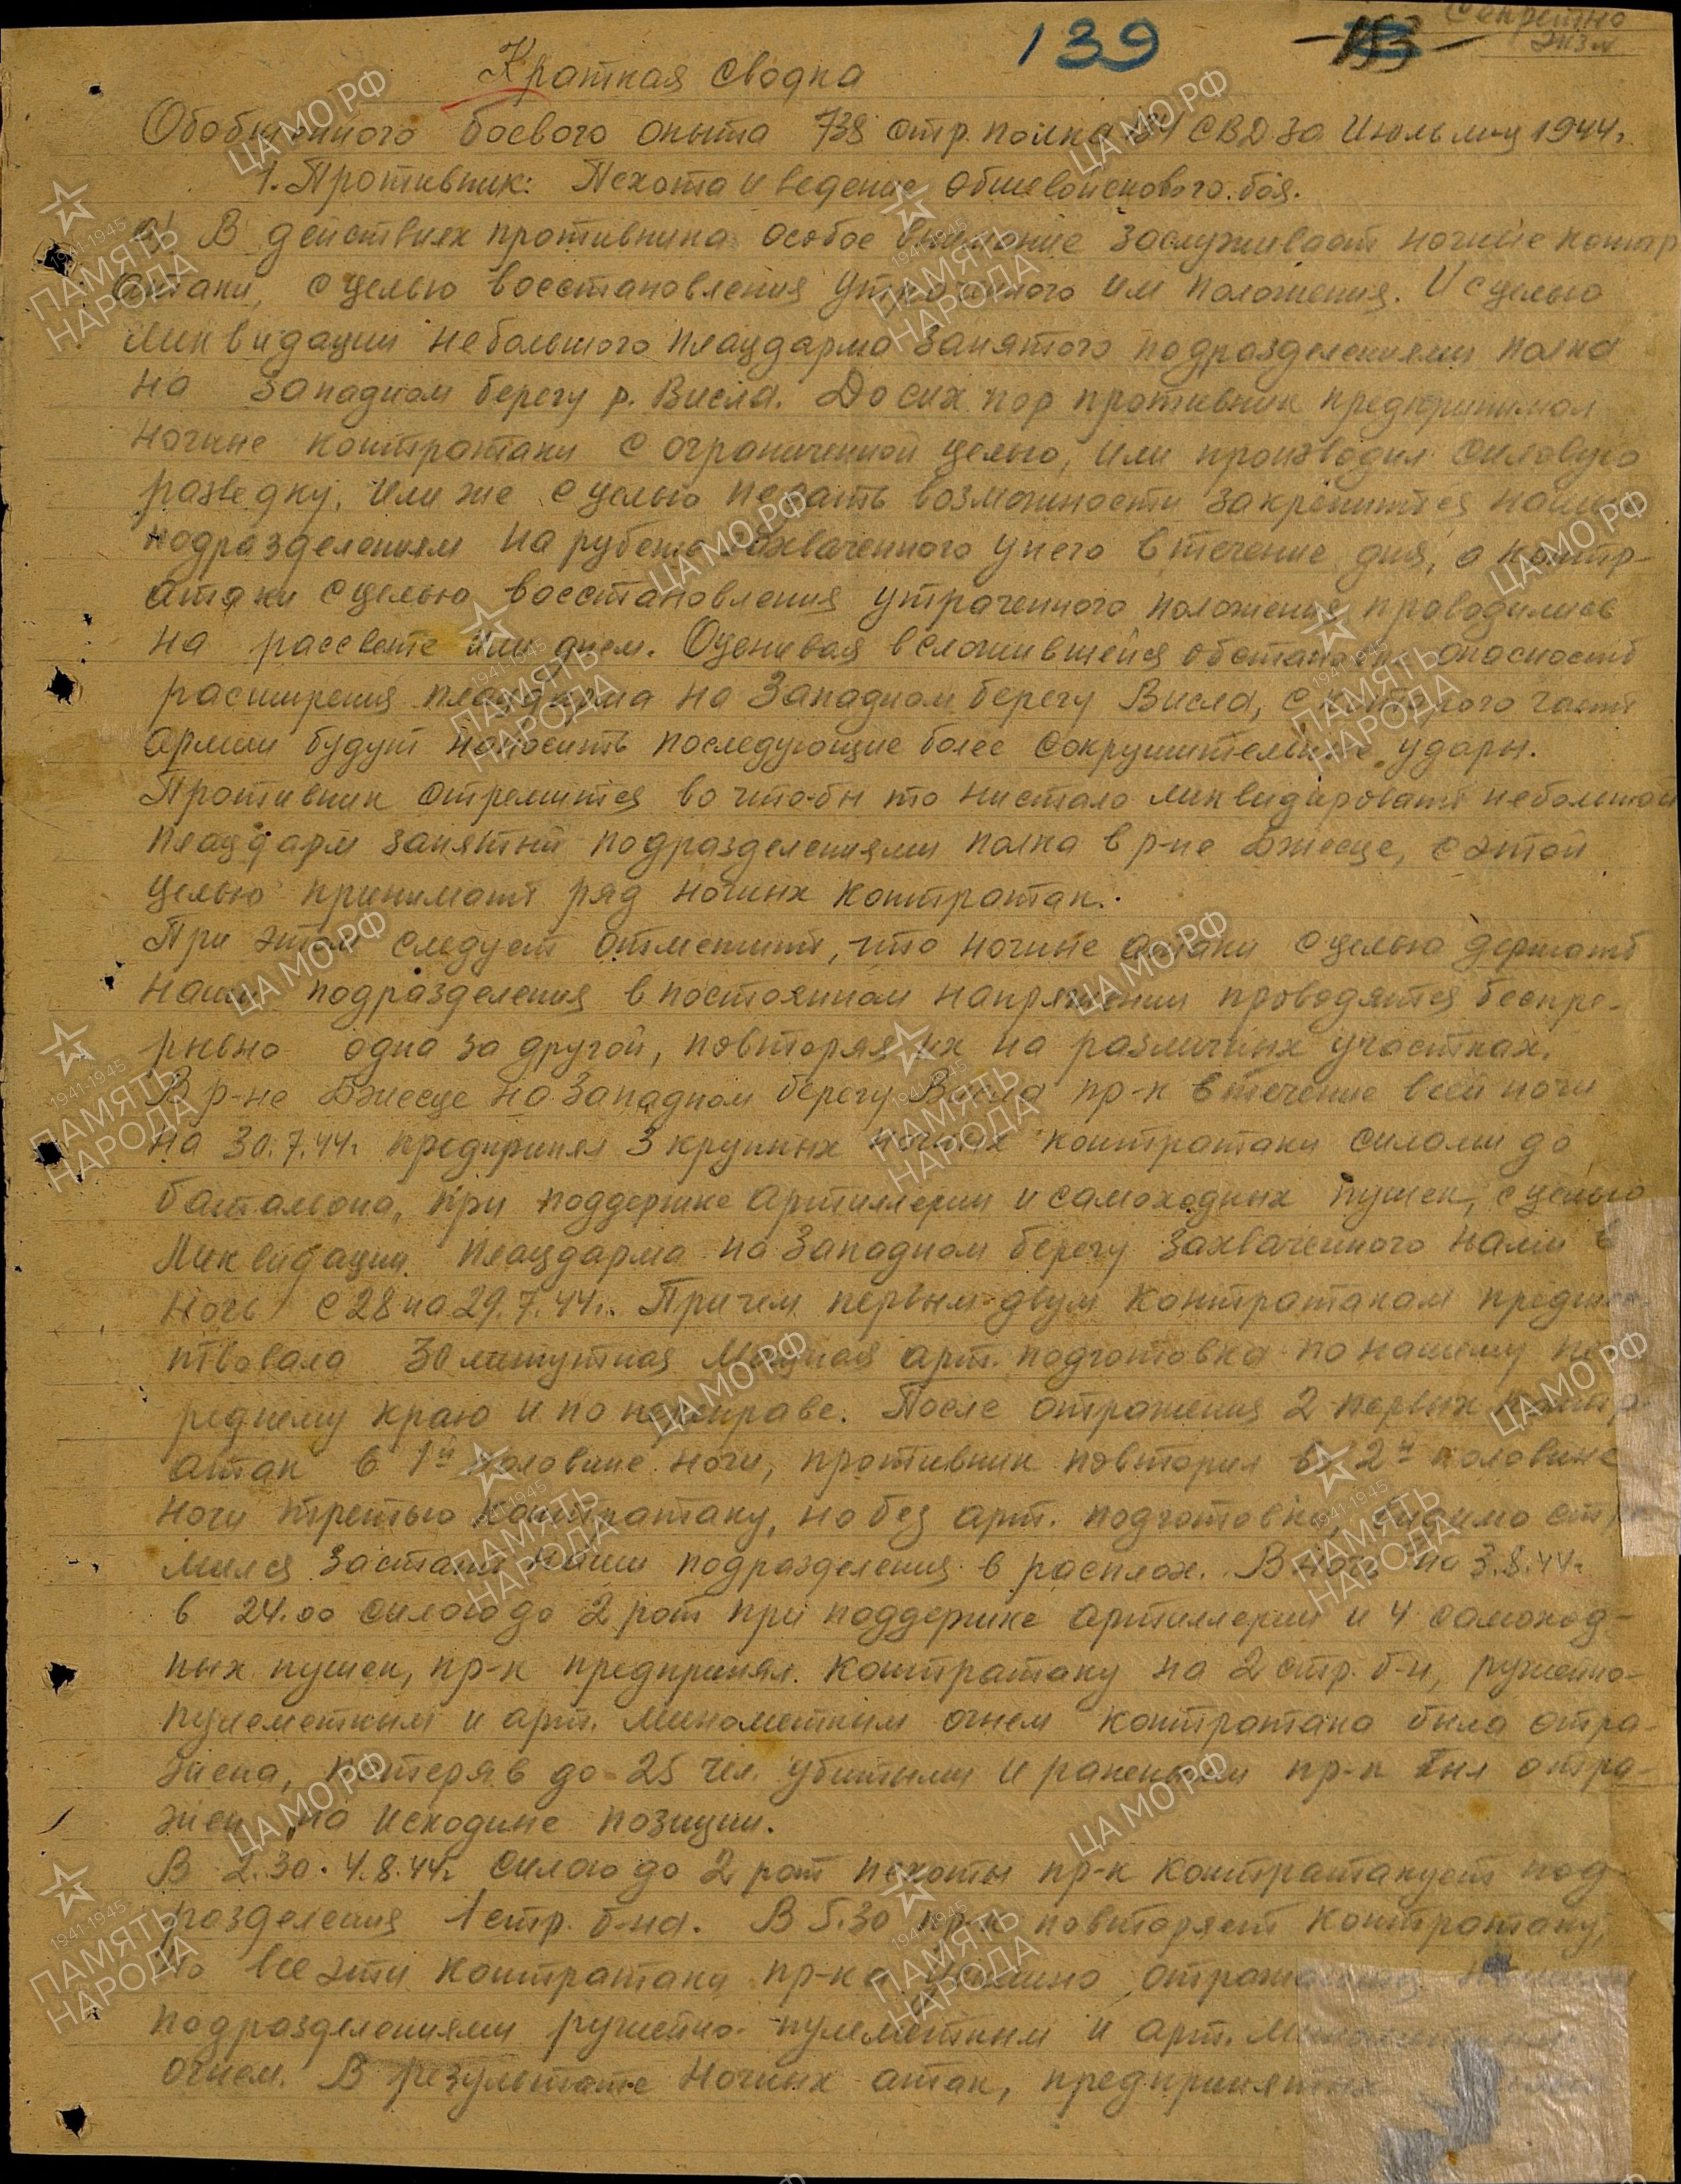 Секретно
Экз №
139
153
Краткая сводка
Обобщенного боевого опыта 738 стр. полка 134 СВД за Июль м-ц 1944г.
1. Противник: Пехота и ведение общевойскового боя.
а) В действиях противника особое внимание заслуживает ночные контр
атаки, с целью восстановления утраченного им положения. И с целью
ликвидации небольшого плацдарма занятого подразделениями полка
на западном берегу р. Висла. До сих пор противник предпринимал
ночные контратаки с ограниченной целью, или производил силовую
разведку, или же с целью не дать возможности закрепится нашим
подразделениям на рубеже захваченного у него в течение дня, а контр-
атаки с целью восстановления утраченного положения проводились
на рассвете или днем. Оценивая в сложившейся обстановке опасность
расширения плацдарма на Западном берегу Висла, с которого части
армии будут наносить последующие более сокрушительные удары.
Противник стремится во что-бы то нистало ликвидировать небольшой
плацдарм занятый подразделениями полка в р-не Бжесце, с этой
целью принимает ряд ночных контратак.
При этом следует отметить, что ночные атаки с целью держать
наши подразделения в постоянном напряжении проводятся беспре-
рывно одна за другой, повторяя их на различных участках.
В р-не Бжесце на Западном берегу Висла пр-к в течение всей ночи
на 30.7.44г. предпринял 3 крупных ночных контратаки силами до
батальона, при поддержке артиллерии и самоходных пушек, с целью
Ликвидации плацдарма на Западном берегу захваченного нами в
ночь с 28 на 29.7.44г. Причем первым двум контратакам предшес-
твовала 30 минутная мощная арт. подготовка по нашему пе-
реднему краю и по переправе. После отражения 2 первых контр-
атак в 1й половине ночи, противник повторил во 2й половине
ночи третью контратаку, но без арт. подготовки, видимо стре
мился застать наши подразделения в расплох. В ночь на 3.8.44г.
в 24.00 силою до 2 рот при поддержке артиллерии и 4 самоход-
ных пушек, пр-к предпринял контратаку на 2 стр. б-н, ружейно-
пулеметным и арт. минометным огнем контратака была отра-
жена, потеряв до 25 чел. убитыми и ранеными пр-к был отра-
жен на исходные позиции.
В 2.30. 4.8.44г. силою до 2 рот пехоты пр-к контратакует под-
разделения 1 стр. б-на. В 5.30 пр-к повторяет контратаку,
Но все эти контратаки пр-ка успешно отражались нашими
подразделениями ружейно-пулеметным и арт. минометным
огнем. В результате ночных атак, предпринятых